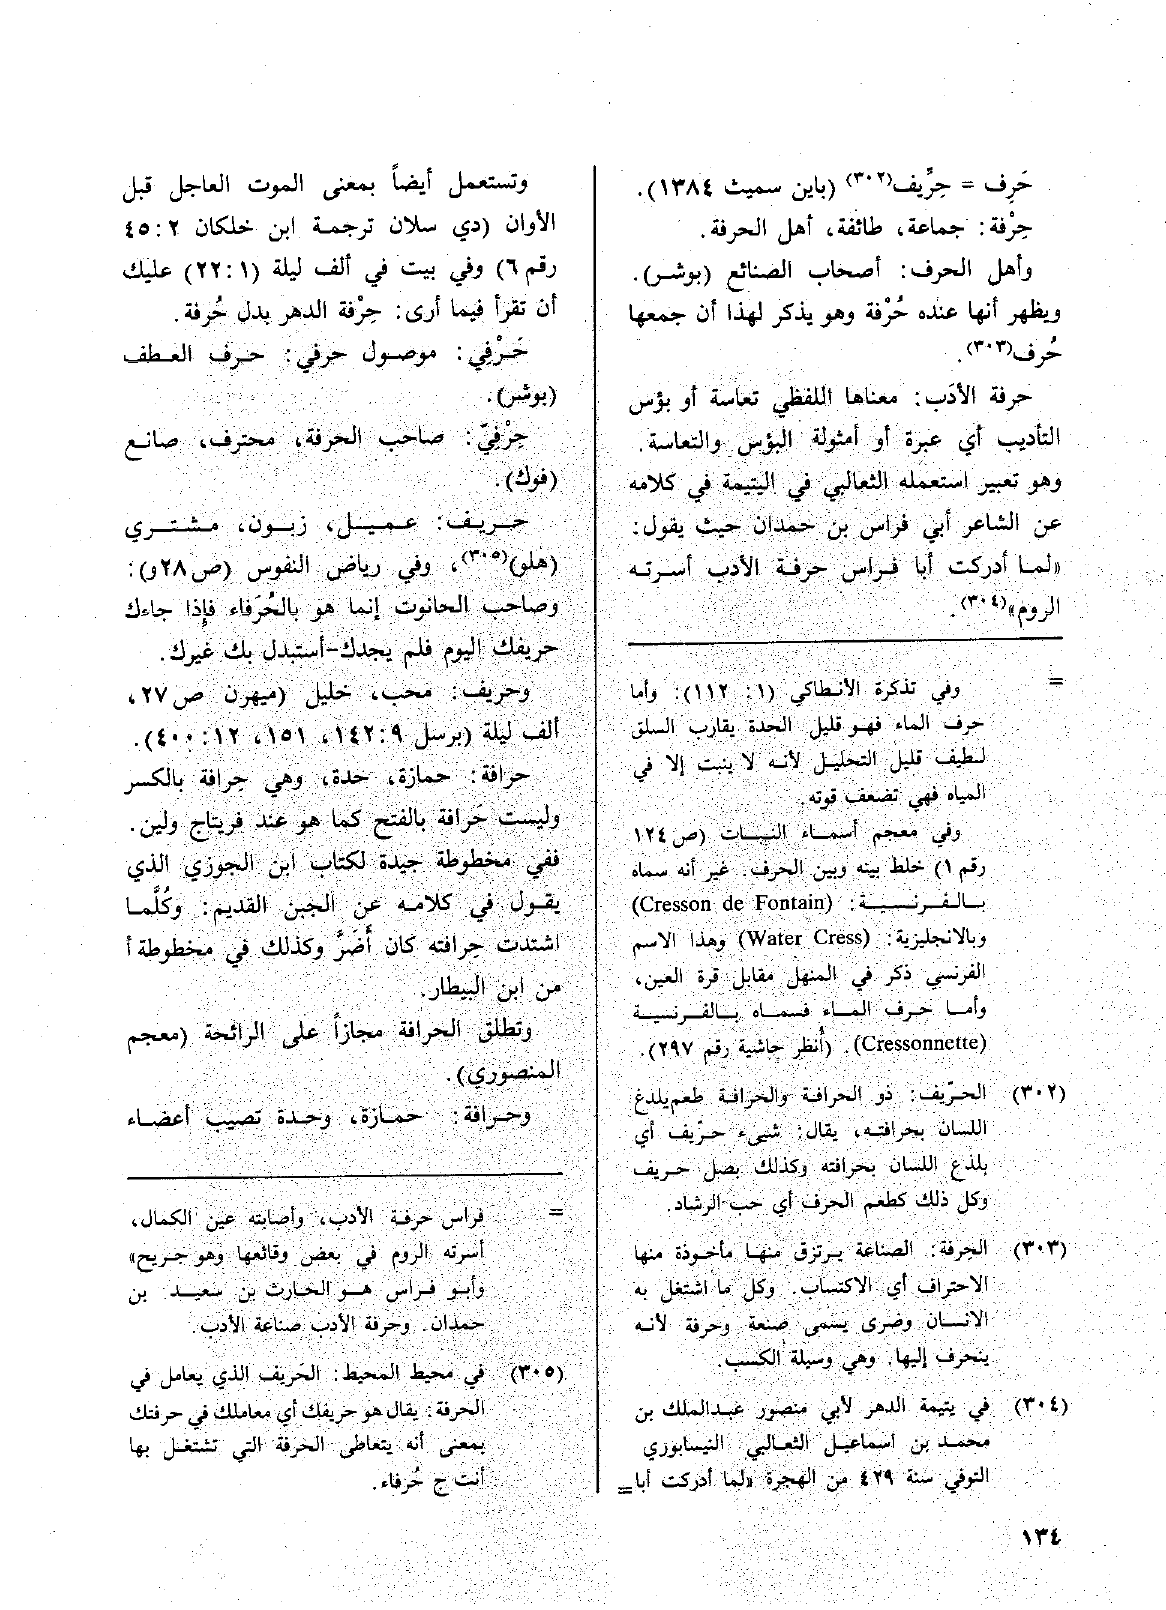 حَرِف = حِرِّيف(٣٠٢) (باين سميث ١٣٨٤).
حِرْفة: جماعة، طائفة، أهل الحرفة.
وأهل الحرف: أصحاب الصنائع (بوشر).
ويظهر أنها عنده حُرْفة وهو يذكر لهذا أن جمعها
حُرف(٣٠٣).
حرفة الأدَب: معناها اللفظي تعاسة أو بؤس
التأديب أي عبرة أو أمثولة البؤس والتعاسة.
وهو تعبير استعمله الثعالبي في اليتيمة في كلامه
عن الشاعر أبي فراس بن حمدان حيث يقول:
«لما أدركت أبا فراس حرفة الأدب أسرته
الروم»(٣٠٤).
= وفي تذكرة الأنطاكي (١: ١١٢): وأما
حرف الماء فهو قليل الحدة يقارب السلق
لطيف قليل التحليل لأنه لا ينبت إلا في
المياه فهي تضعف قوته.
وفي معجم أسماء النبات (ص١٢٤
رقم ١) خلط بينه وبين الحرف. غير أنه سماه
بالفرنسية: (Cresson de Fontain)
وبالانجليزية: (Water Cress) وهذا الاسم
الفرنسي ذكر في المنهل مقابل قرة العين،
وأما حرف الماء فسماه بالفرنسية
(Cressonnette). (أنظر حاشية رقم ٢٩٧).
(٣٠٢) الحرّيف: ذو الحرافة والحرافة طعم يلدغ
اللسان بحرافته، يقال: شيء حرّيف أي
يلذع اللسان بحرافته وكذلك بصل حريف
وكل ذلك كطعم الحرف أي حب الرشاد.
(٣٠٣) الحِرفة: الصناعة يرتزق منها مأخوذة منها
الاحتراف أي الاكتساب. وكل ما اشتغل به
الانسان وضرى يسمى صنعة وحرفة لأنه
ينحرف إليها. وهي وسيلة الكسب.
(٣٠٤) في يتيمة الدهر لأبي منصور عبدالملك بن
محمد بن اسماعيل الثعالبي النيسابوري
التوفي سنة ٤٢٩ من الهجرة «لما أدركت أبا =
وتستعمل أيضاً بمعنى الموت العاجل قبل
الأوان (دي سلان ترجمة ابن خلكان ٢: ٤٥
رقم ٦) وفي بيت في ألف ليلة (١: ٢٢) عليك
أن تقرأ فيما أرى: حِرْفة الدهر بدل حُرفة.
حَرْفِي: موصول حرفي: حرف العطف
(بوشر).
حِرْفِيّ: صاحب الحرفة، محترف، صانع
(فوك).
حريف: عميل، زبون، مشتري
(هلو)(٣٠٥)، وفي رياض النفوس (ص٢٨و):
وصاحب الحانوت إنما هو بالحُرَفاء فإذا جاءك
حريفك اليوم فلم يجدك-أستبدل بك غيرك.
وحريف: محب، خليل (ميهرن ص٢٧،
ألف ليلة (برسل ٩: ١٤٢، ١٥١، ١٢: ٤٠٠).
حرافة: حمازة، حدة، وهي حِرافة بالكسر
وليست حَرافة بالفتح كما هو عند فريتاج ولين.
ففي مخطوطة جيدة لكتاب ابن الجوزي الذي
يقول في كلامه عن الجبن القديم: وكُلَّما
اشتدت حِرافته كان أَضَرَّ وكذلك في مخطوطة أ
من ابن البيطار.
وتطلق الحرافة مجازاً على الرائحة (معجم
المنصوري).
وحرافة: حمازة، وحدة تصيب أعضاء
= فراس حرفة الأدب، وأصابته عين الكمال،
أسرته الروم في بعض وقائعها وهو جريح»
وأبو فراس هو الحارث بن سعيد بن
حمدان. وحرفة الأدب صناعة الأدب.
(٣٠٥) في محيط المحيط: الحَريف الذي يعامل في
الحرفة: يقال هو حريفك أي معاملك في حرفتك
بمعنى أنه يتعاطى الحرفة التي تشتغل بها
أنت ج حُرفاء.
١٣٤